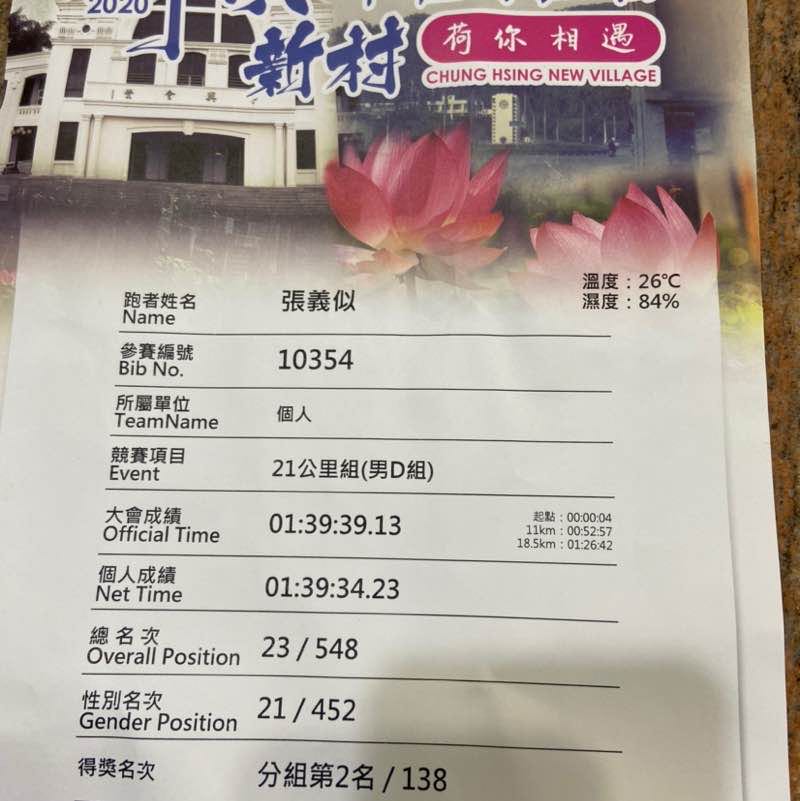 2020
新村
荷你相遇
CHUNG HSING NEW VILLAGE
溫度：26℃
濕度：84%
跑者姓名 張義似
Name
參賽編號 10354
Bib No.
所屬單位 個人
TeamName
競賽項目 21公里組(男D組)
Event
大會成績 01:39:39.13
Official Time
起點：00:00:04
11km：00:52:57
18.5km：01:26:42
個人成績 01:39:34.23
Net Time
總名次 23 / 548
Overall Position
性別名次 21 / 452
Gender Position
得獎名次 分組第2名 / 138